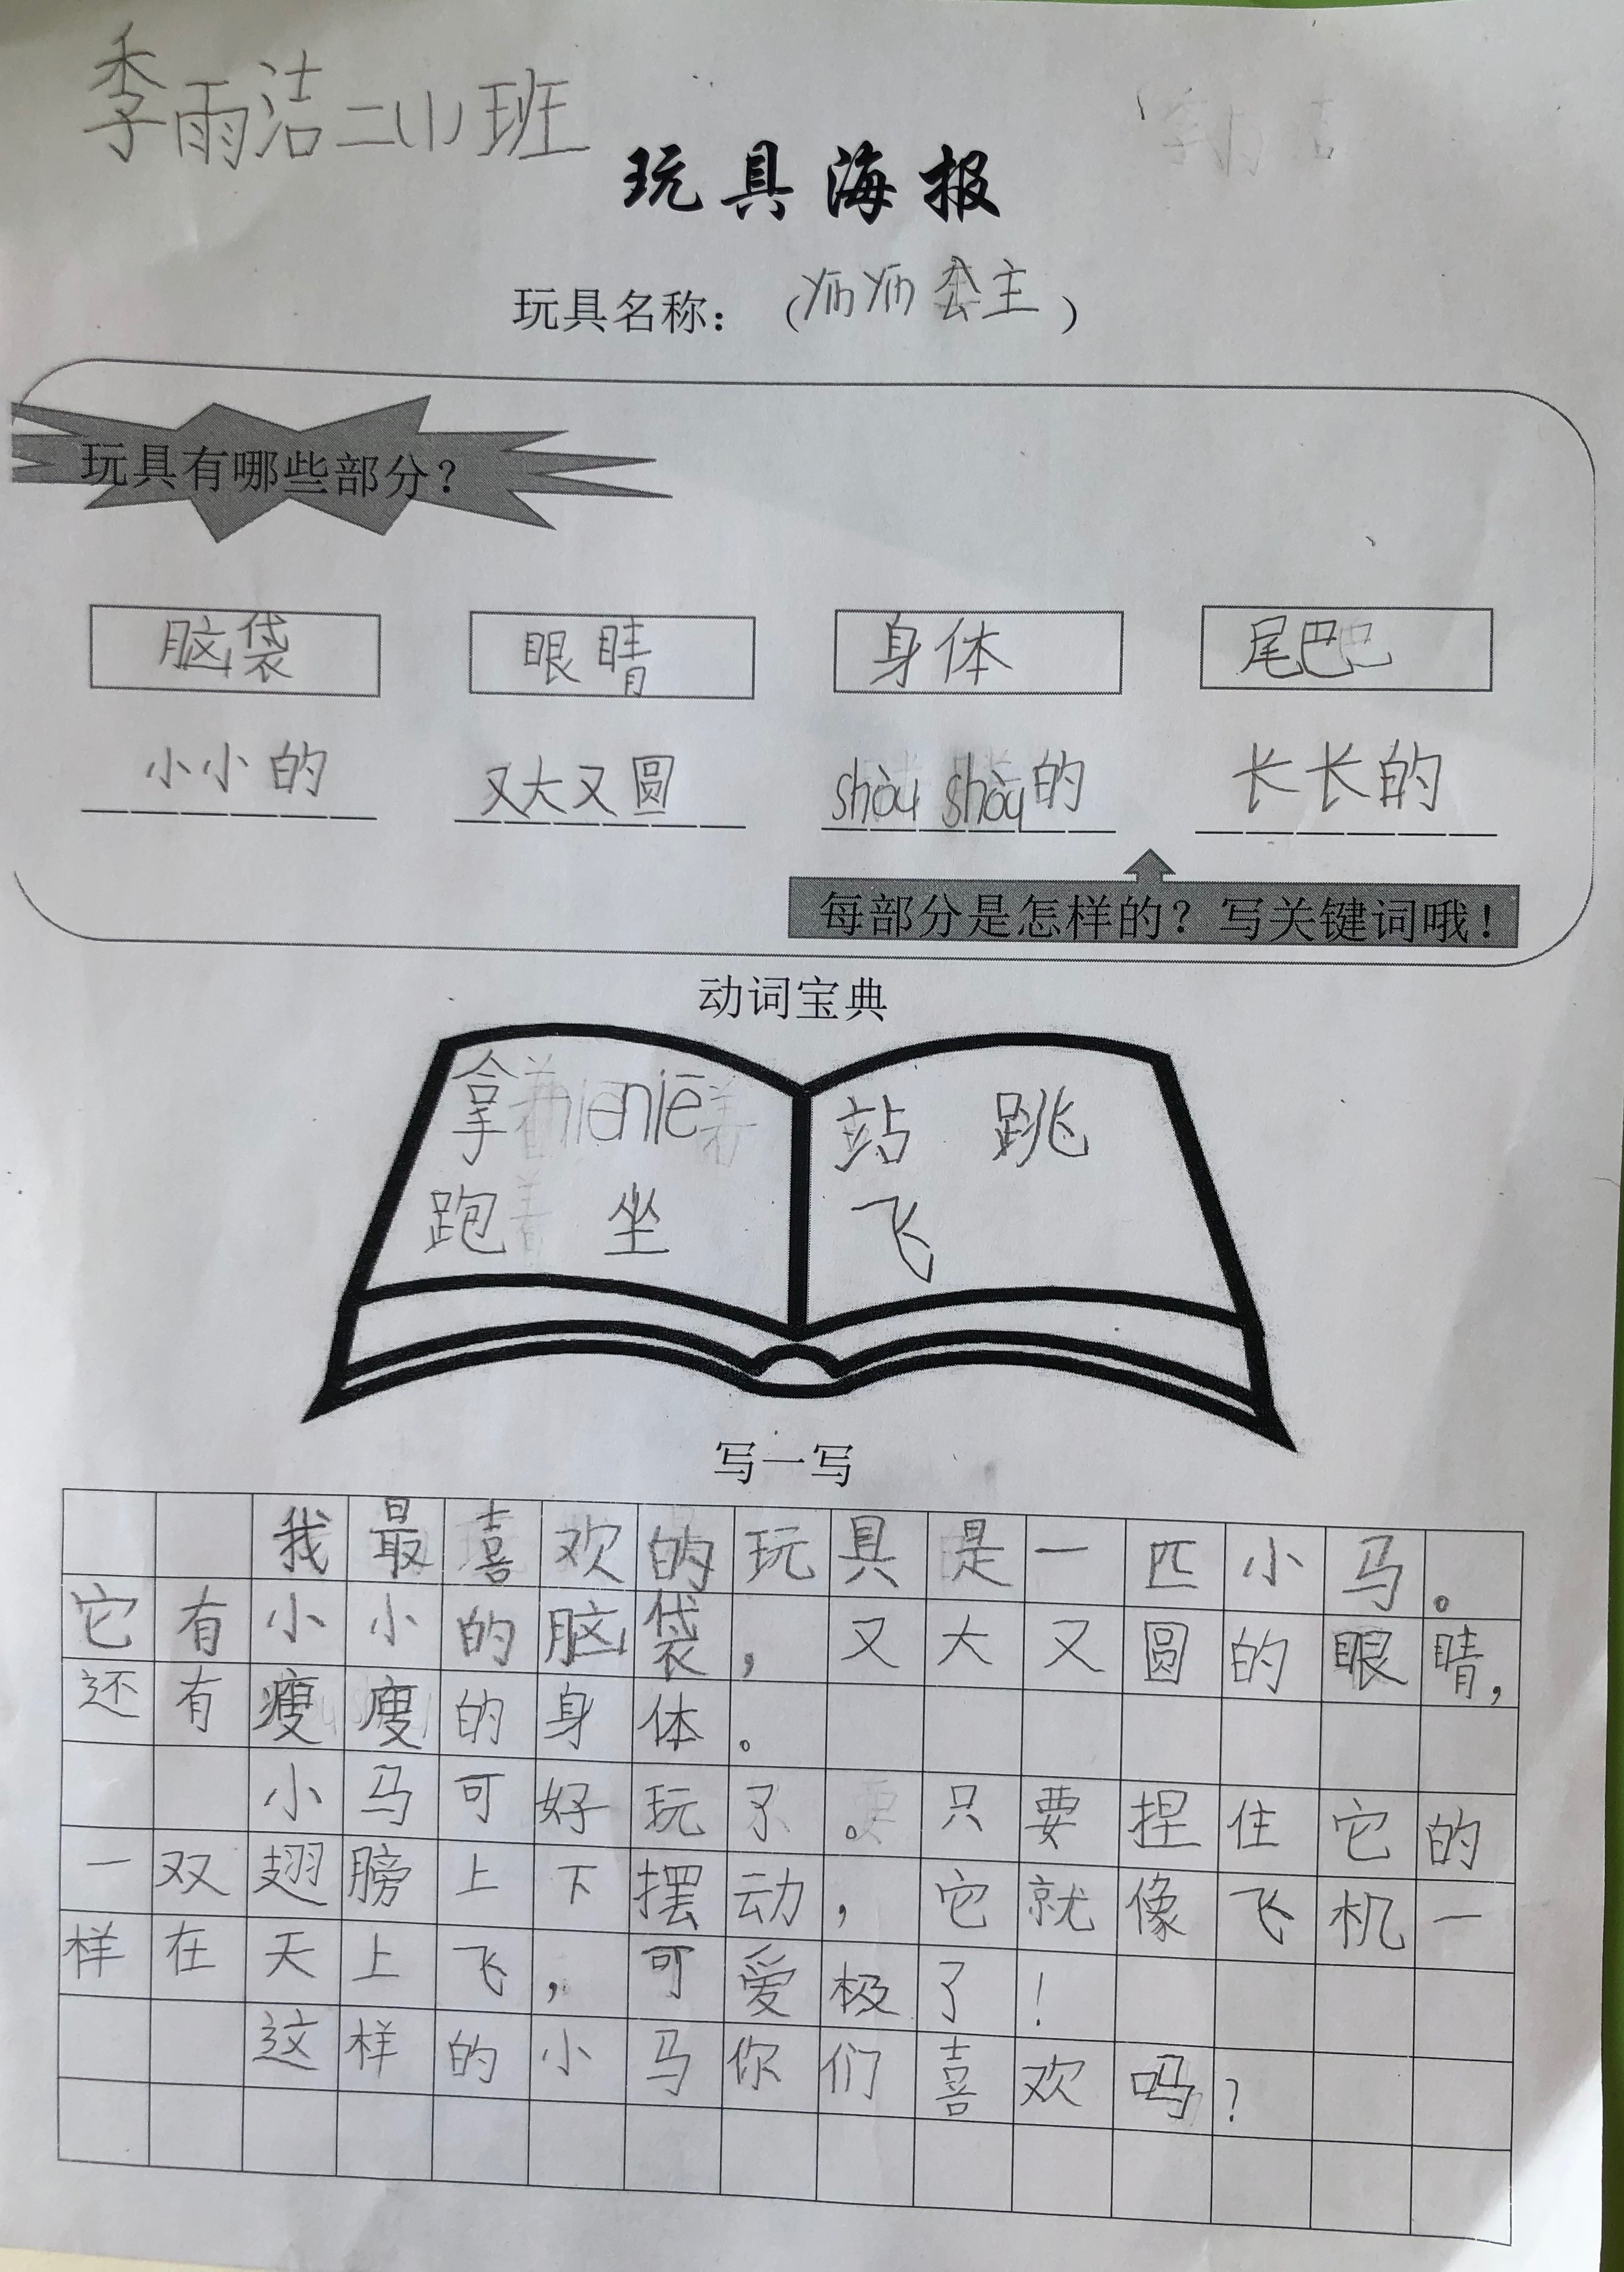 季雨洁二(1)班
玩具海报
玩具名称：（yīn yīn 公主）
玩具有哪些部分？
脑袋 眼睛 身体 尾巴
小小的 又大又圆 shòu shòu的 长长的
每部分是怎样的？写关键词哦！
动词宝典
拿 niē 站 跳
跑 坐 飞
写一写
我最喜欢的玩具是一匹小马。
它有小小的脑袋，又大又圆的眼睛，
还有瘦瘦的身体。
小马可好玩了。只要捏住它的
一双翅膀上下摆动，它就像飞机一
样在天上飞，可爱极了！
这样的小马你们喜欢吗？